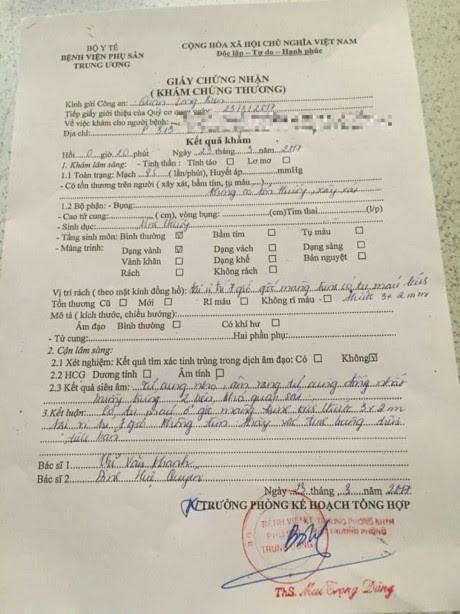 BỘ Y TẾ
BỆNH VIỆN PHỤ SẢN
TRUNG ƯƠNG
CỘNG HÒA XÃ HỘI CHỦ NGHĨA VIỆT NAM
Độc lập – Tự do – Hạnh phúc
GIẤY CHỨNG NHẬN
( KHÁM CHỨNG THƯƠNG)
Kính gửi Công an: Quận Long Biên
Tiếp giấy giới thiệu của Quý cơ quan ngày 23/3/2017
Về việc khám cho người bệnh:
Địa chỉ: P 313
Kết quả khám
Hồi 0 giờ 20 phút Ngày 23 tháng 3 năm 2017
1. Khám lâm sàng: - Tinh thần: Tỉnh táo Lơ mơ
1.1 Toàn trạng: Mạch 85 ( lần/phút), Huyết áp mmHg
- Có tổn thương trên người ( xây xát, bầm tím, tụ máu )
Không có tổn thương, xây xát
1.2 Bộ phận: - Bụng:
- Cao tử cung: ( cm), vòng bụng: (cm)Tim thai (l/p)
- Sinh dục:
- Tầng sinh môn: Bình thường Bầm tím Tụ máu
- Màng trinh: Dạng vành Dạng vách Dạng sàng
Vành khăn Dạng khế Bán nguyệt
Rách Không rách
Vị trí rách ( theo mặt kính đồng hồ): tại vị trí 9 giờ gốc màng trinh có tụ máu kích
Tổn thương Cũ Mới Rỉ máu Không rỉ máu - thước 3x2mm
Mô tả ( kích thước, chiều hướng):
Âm đạo Bình thường Có khí hư
- Tử cung: Hai phần phụ:
2. Cận lâm sàng:
2.1 Xét nghiệm: Kết quả tìm xác tinh trùng trong dịch âm đạo: Có Không
2.2 HCG Dương tính Âm tính
2.3 Kết quả siêu âm: Tử cung nhỏ, âm vang tử cung đồng nhất
buồng trứng 2 bên khó quan sát
3.Kết luận: Có tụ máu ở gốc màng trinh kích thước 3x2m
tại vị trí 9 giờ. Không tìm thấy xác tinh trùng trên
tiêu bản
Bác sĩ 1 Vũ Văn Khanh
Bác sĩ 2 Đinh Huệ Quyên
Ngày 23 tháng 3 năm 2017
TRƯỞNG PHÒNG KẾ HOẠCH TỔNG HỢP
BỆNH VIỆN
TRUNG ƯƠNG
ThS. Mai Trọng Dũng